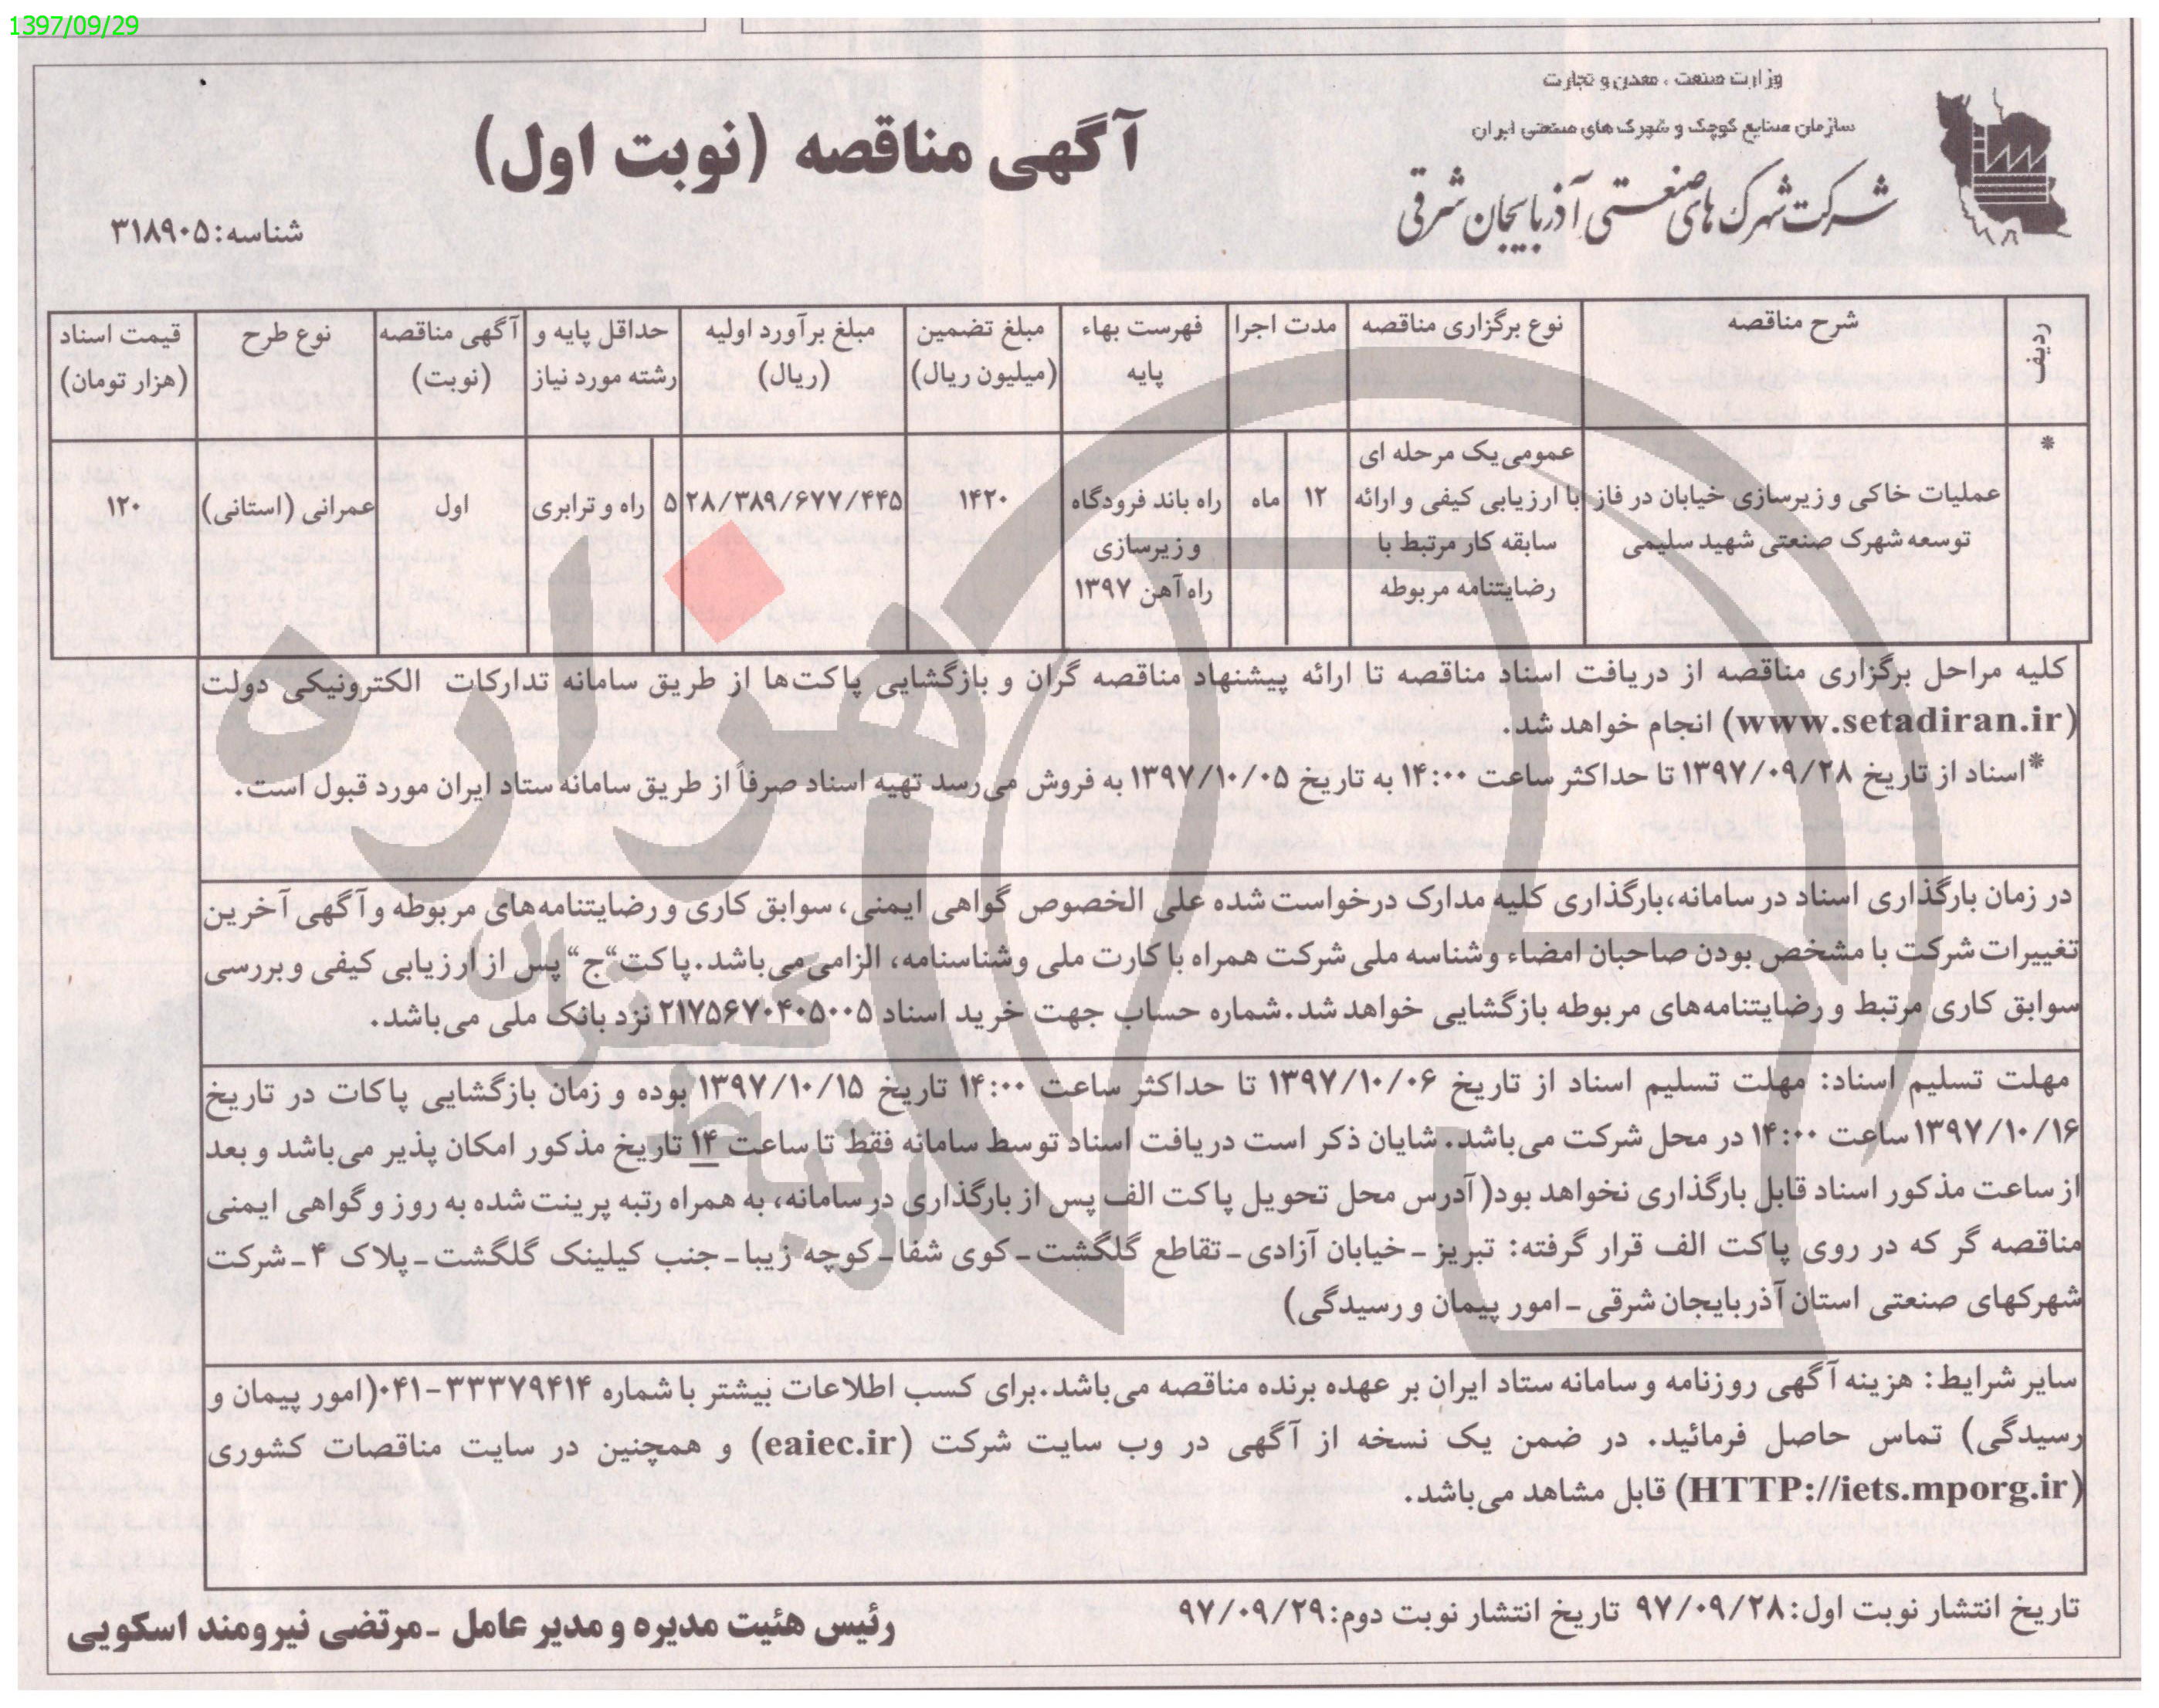 1397/09/29
وزارت صنعت ، معدن و تجارت
سازمان صنایع کوچک و شهرک های صنعتی ایران
شرکت شهرک های صنعتی آذربایجان شرقی
آگهی مناقصه (نوبت اول)
شناسه: ۳۱۸۹۰۵
ردیف
شرح مناقصه
نوع برگزاری مناقصه
مدت اجرا
فهرست بهاء
پایه
مبلغ تضمین
(میلیون ریال)
مبلغ برآورد اولیه
(ریال)
حداقل پایه و
رشته مورد نیاز
آگهی مناقصه
(نوبت)
نوع طرح
قیمت اسناد
(هزار تومان)
*
عملیات خاکی و زیرسازی خیابان در فاز
توسعه شهرک صنعتی شهید سلیمی
عمومی یک مرحله ای
با ارزیابی کیفی و ارائه
سابقه کار مرتبط با
رضایتنامه مربوطه
۱۲
ماه
راه باند فرودگاه
و زیرسازی
راه آهن ۱۳۹۷
۱۴۲۰
۲۸/۳۸۹/۶۷۷/۴۴۵
۵
راه و ترابری
اول
عمرانی (استانی)
۱۲۰
کلیه مراحل برگزاری مناقصه از دریافت اسناد مناقصه تا ارائه پیشنهاد مناقصه گران و بازگشایی پاکت‌ها از طریق سامانه تدارکات الکترونیکی دولت
(www.setadiran.ir) انجام خواهد شد.
*اسناد از تاریخ ۱۳۹۷/۰۹/۲۸ تا حداکثر ساعت ۱۴:۰۰ به تاریخ ۱۳۹۷/۱۰/۰۵ به فروش می‌رسد تهیه اسناد صرفاً از طریق سامانه ستاد ایران مورد قبول است.
در زمان بارگذاری اسناد در سامانه،بارگذاری کلیه مدارک درخواست شده علی الخصوص گواهی ایمنی، سوابق کاری و رضایتنامه‌های مربوطه و آگهی آخرین
تغییرات شرکت با مشخص بودن صاحبان امضاء وشناسه ملی شرکت همراه با کارت ملی وشناسنامه، الزامی می‌باشد.پاکت“ج“ پس از ارزیابی کیفی و بررسی
سوابق کاری مرتبط و رضایتنامه‌های مربوطه بازگشایی خواهد شد.شماره حساب جهت خرید اسناد ۲۱۷۵۶۷۰۴۰۵۰۰۵ نزد بانک ملی می‌باشد.
مهلت تسلیم اسناد: مهلت تسلیم اسناد از تاریخ ۱۳۹۷/۱۰/۰۶ تا حداکثر ساعت ۱۴:۰۰ تاریخ ۱۳۹۷/۱۰/۱۵ بوده و زمان بازگشایی پاکات در تاریخ
۱۳۹۷/۱۰/۱۶ ساعت ۱۴:۰۰ در محل شرکت می‌باشد. شایان ذکر است دریافت اسناد توسط سامانه فقط تا ساعت ۱۴ تاریخ مذکور امکان پذیر می‌باشد و بعد
از ساعت مذکور اسناد قابل بارگذاری نخواهد بود( آدرس محل تحویل پاکت الف پس از بارگذاری در سامانه، به همراه رتبه پرینت شده به روز و گواهی ایمنی
مناقصه گر که در روی پاکت الف قرار گرفته: تبریز ـ خیابان آزادی ـ تقاطع گلگشت ـ کوی شفا ـ کوچه زیبا ـ جنب کیلینک گلگشت ـ پلاک ۴ ـ شرکت
شهرکهای صنعتی استان آذربایجان شرقی ـ امور پیمان و رسیدگی)
سایر شرایط: هزینه آگهی روزنامه و سامانه ستاد ایران بر عهده برنده مناقصه می‌باشد.برای کسب اطلاعات بیشتر با شماره ۳۳۳۷۹۴۱۴-۰۴۱(امور پیمان و
رسیدگی) تماس حاصل فرمائید. در ضمن یک نسخه از آگهی در وب سایت شرکت (eaiec.ir) و همچنین در سایت مناقصات کشوری
(HTTP://iets.mporg.ir) قابل مشاهد می‌باشد.
تاریخ انتشار نوبت اول: ۹۷/۰۹/۲۸ تاریخ انتشار نوبت دوم: ۹۷/۰۹/۲۹
رئیس هئیت مدیره و مدیر عامل ـ مرتضی نیرومند اسکویی
هزاره